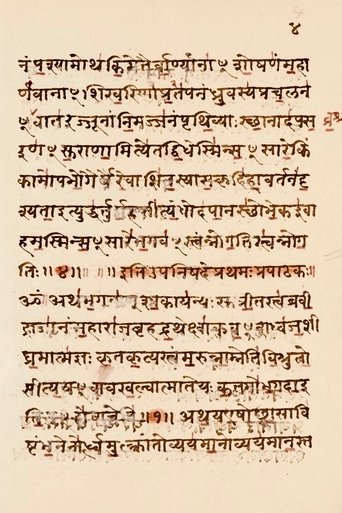 ४
नं पश्यामोथ किमेतैर्वान्यानाꣳ शोषणं महा
र्णवानाꣳ शिखरिणां प्रपतनं ध्रुवस्य प्रचलनं
वातरज्जूनां निमज्जनं पृथिव्याः स्थानादपस
रणꣳ सुराणामित्येतद्विधेस्मिन्सꣳसारे किं
कामोपभोगैर्यैरेवाशितस्यासकृदिहावर्तनं दृ
श्यता इत्युद्धर्तुमर्हसीत्यंधोदपानस्थोभेक इवा
हमस्मिन्सꣳसारे भगवꣳस्त्वन्नो गतिस्त्वन्नो ग
तिः ॥४॥ इति उपनिषदे प्रथमः प्रपाठकः
ॐ अथ भगवान् शाकायन्यः सुप्रीतस्त्वब्रवी
द्राजानं महाराज बृहद्रथेक्ष्वाकुवꣳशध्वजशी
घ्रमात्मज्ञः कृतकृत्यस्त्वं मरुन्नाम्नेति विश्रुतो
सीत्ययꣳ वाव खल्वात्मा ते यः कतमो भगवा इ
ति ॥१॥ अथ य एषोच्छ्वासावि
ष्टंभनेनोर्ध्वमुत्क्रांतो व्ययमानोव्ययमानस्त